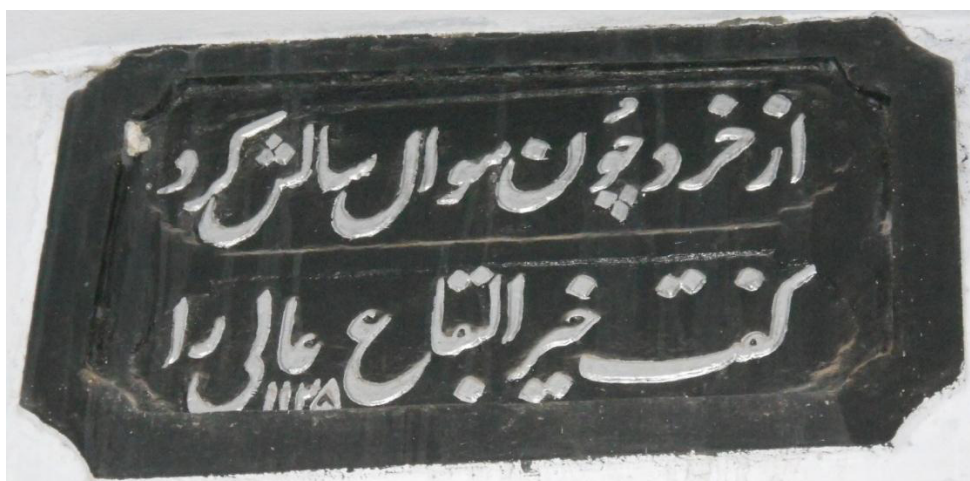 از خرد چُون سوال سالش کرد
کفت خیر البقاع عالی را
۱۱۲۵